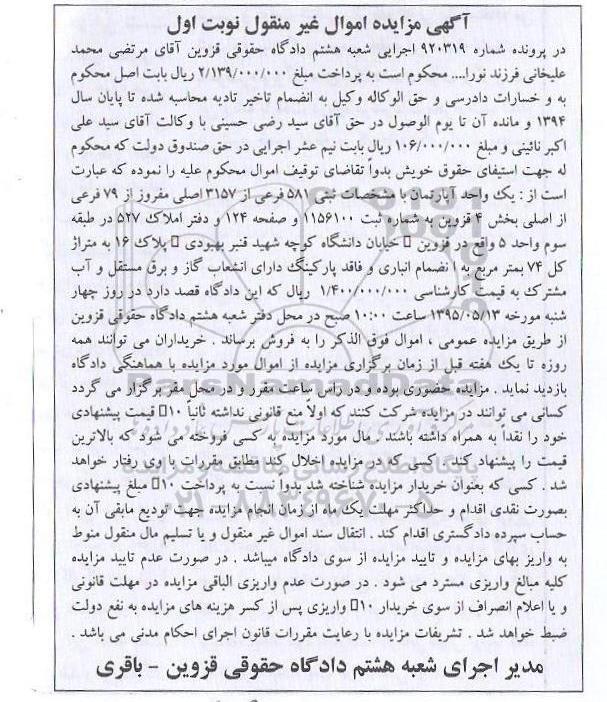 آگهی مزایده اموال غیر منقول نوبت اول
در پرونده شماره ۹۲۰۳۱۹ اجرایی شعبه هشتم دادگاه حقوقی قزوین آقای مرتضی محمد
علیخانی فرزند نورا.... محکوم است به پرداخت مبلغ ۲/۱۳۹/۰۰۰/۰۰۰ ریال بابت اصل محکوم
به و خسارات دادرسی و حق الوکاله وکیل به انضمام تاخیر تادیه محاسبه شده تا پایان سال
۱۳۹۴ و مانده آن تا یوم الوصول در حق آقای سید رضی حسینی با وکالت آقای سید علی
اکبر نائینی و مبلغ ۱۰۶/۰۰۰/۰۰۰ ریال بابت نیم عشر اجرایی در حق صندوق دولت که محکوم
له جهت استیفای حقوق خویش بدواً تقاضای توقیف اموال محکوم علیه را نموده که عبارت
است از : یک واحد آپارتمان با مشخصات ثبتی ۵۸۱ فرعی از ۳۱۵۷ اصلی مفروز از ۷۹ فرعی
از اصلی بخش ۴ قزوین به شماره ثبت ۱۱۵۶۱۰۰ و صفحه ۱۲۴ و دفتر املاک ۵۲۷ در طبقه
سوم واحد ۵ واقع در قزوین □ خیابان دانشگاه کوچه شهید قنبر بهبودی □ پلاک ۱۶ به متراژ
کل ۷۴ بمتر مربع به انضمام انباری و فاقد پارکینگ دارای انشعاب گاز و برق مستقل و آب
مشترک به قیمت کارشناسی ۱/۴۰۰/۰۰۰/۰۰۰ ریال که این دادگاه قصد دارد در روز چهار
شنبه مورخه ۱۳۹۵/۰۵/۱۳ ساعت ۱۰:۰۰ صبح در محل دفتر شعبه هشتم دادگاه حقوقی قزوین
از طریق مزایده عمومی ، اموال فوق الذکر را به فروش برساند . خریداران می توانند همه
روزه تا یک هفته قبل از زمان برگزاری مزایده از اموال مورد مزایده با هماهنگی دادگاه
بازدید نماید . مزایده حضوری بوده و در راس ساعت مقرر و در محل مقر برگزار می گردد
کسانی می توانند در مزایده شرکت کنند که اولاً منع قانونی نداشته ثانیاً ۱۰□ قیمت پیشنهادی
خود را نقداً به همراه داشته باشند . مال مورد مزایده به کسی فروخته می شود که بالاترین
قیمت را پیشنهاد کند . کسی که در مزایده اخلال کند مطابق مقررات با وی رفتار خواهد
شد . کسی که بعنوان خریدار مزایده شناخته شد بدوا نسبت به پرداخت ۱۰□ مبلغ پیشنهادی
بصورت نقدی اقدام و حداکثر مهلت یک ماه از زمان انجام مزایده جهت تودیع مابقی آن به
حساب سپرده دادگستری اقدام کند . انتقال سند اموال غیر منقول و یا تسلیم مال منقول منوط
به واریز بهای مزایده و تایید مزایده از سوی دادگاه میباشد . در صورت عدم تایید مزایده
کلیه مبالغ واریزی مسترد می شود . در صورت عدم واریزی الباقی مزایده در مهلت قانونی
و یا اعلام انصراف از سوی خریدار ۱۰□ واریزی پس از کسر هزینه های مزایده به نفع دولت
ضبط خواهد شد . تشریفات مزایده با رعایت مقررات قانون اجرای احکام مدنی می باشد .
مدیر اجرای شعبه هشتم دادگاه حقوقی قزوین - باقری
ParsNamadData